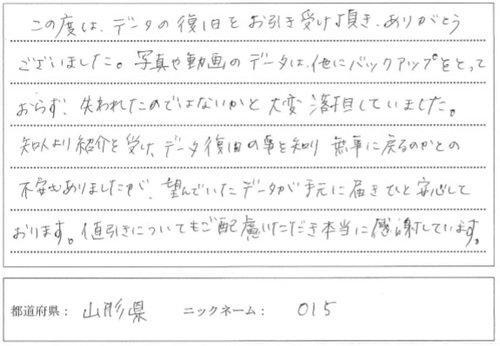 この度は、データの復旧をお引き受け頂き、ありがとう
ございました。写真や動画のデータは、他にバックアップをとって
おらず、失われたのではないかと大変落胆していました。
知人より紹介を受け、データ復旧の事を知り 無事に戻るのかとの
不安もありましたが、望んでいたデータが手元に届きひと安心して
おります。値引きについてもご配慮いただき本当に感謝しています。
都道府県： 山形県 ニックネーム： 015